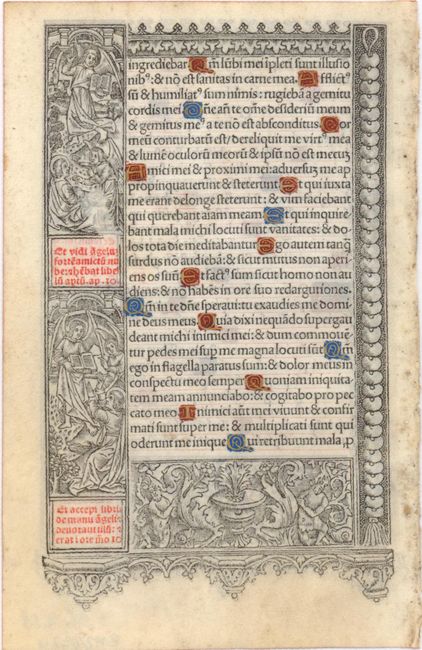 ingrediebar Qm̄ lūbi mei īpleti sunt illusio
nibꝰ: & nō est sanitas in carne mea. Afflictꝰ
sū & humiliatꝰ sum nimis: rugiebā a gemitu
cordis mei Dn̄e an̄ te om̄e desideriū meum
& gemitus meꝰ a te nō est absconditus. Cor
meū conturbatū est / dereliquit me virtꝰ mea
& lumē oculorū meorū & ip̄sū nō est mecū
Amici mei & proximi mei: adversuꝫ me ap
propinquaverunt & steterunt Et qui iuxta
me erant de longe steterunt: & vim faciebant
qui querebant aīam meam Et qui inquire
bant mala michi locuti sunt vanitates: & do
los tota die meditabantur Ego autem tanq̄
surdus nō audiebā: & sicut mutus non aperi
ens os suū Et factꝰ sum sicut homo non au
diens: & nō habēs in ore suo redargutiones.
Qm̄ in te dn̄e speravi: tu exaudies me domi
ne deus meus Quia dixi ne quādo supergau
deant michi inimici mei: & dum commovē
tur pedes mei sup̄ me magna locuti sūt Qm̄
ego in flagella paratus sum: & dolor meus in
conspectu meo semper Quoniam iniquita
tem meam annunciabo: & cogitabo pro pec
cato meo Inimici aūt mei vivunt & confir
mati sunt super me: & multiplicati sunt qui
oderunt me inique Qui retribuunt mala, p
Et vidi āgeluꝫ
fortē amictū nu
be: & hēbat libel
lū aptū. ap. 10.
Et accepi librū
de manu āgeli &
devoravi illū: &
erat ī ore meo 10